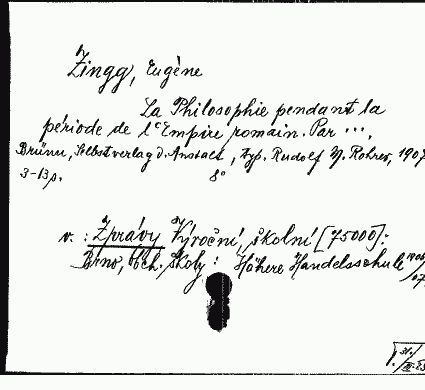 Zingg, Eugène
La Philosophie pendant la
période de l'Empire romain. Par ...,
Brünn, Selbstverlag d. Anstalt, Typ. Rudolf M. Rohrer, 1907
3-13 p. 8°
v.: Zprávy Výroční, školní [75000]:
Brno, Obch. školy: Höhere Handelsschule 1906/07